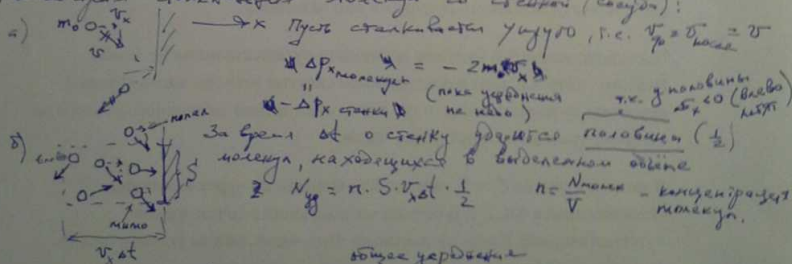 а) m₀ v_x v → x Пусть сталкивается упруго, т.е. v_до = v_после = v
Δp_x молекулы = - 2m₀v_x
"
- Δp_x стенки (пока усреднения не надо)
т.к. у половины v_x < 0 (влево летят)
б) попал За время Δt о стенку ударится половина (1/2)
молекул, находящихся в выделенном объёме
S N_уд = n · S · v_x Δt · 1/2 n = N молек / V - концентрация молекул.
мимо
v_x Δt
общее усреднение